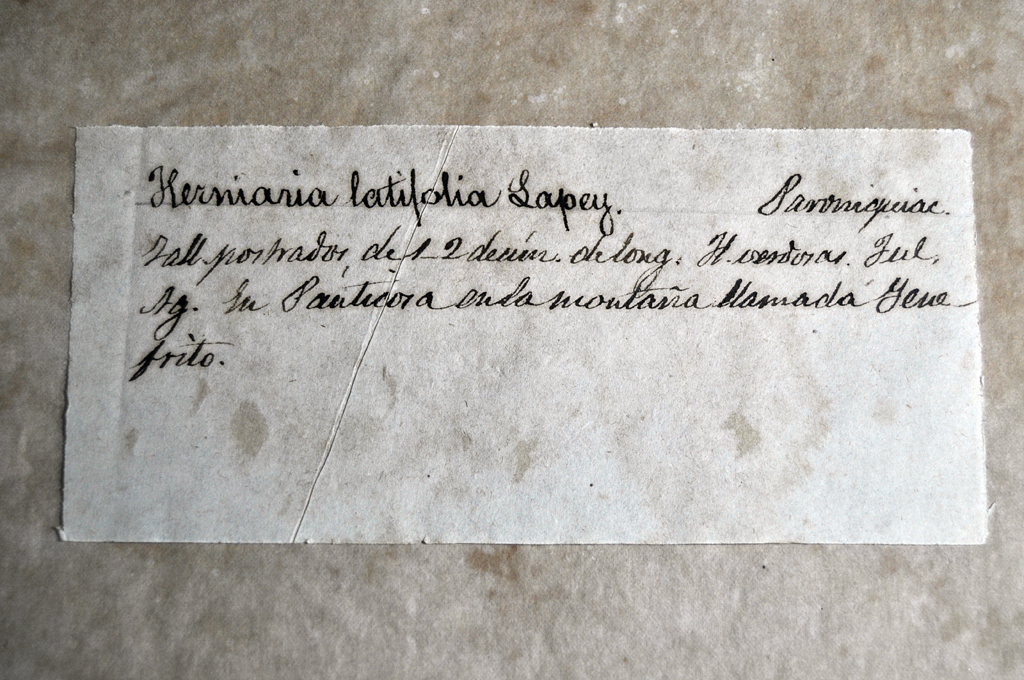 Herniaria latifolia Lapey. Paroniquiac.
Tall. postrados de 1-2 decím. de long. H. verdosas. Jul.
Ag. En Panticosa en la montaña llamada Yene-
frito.